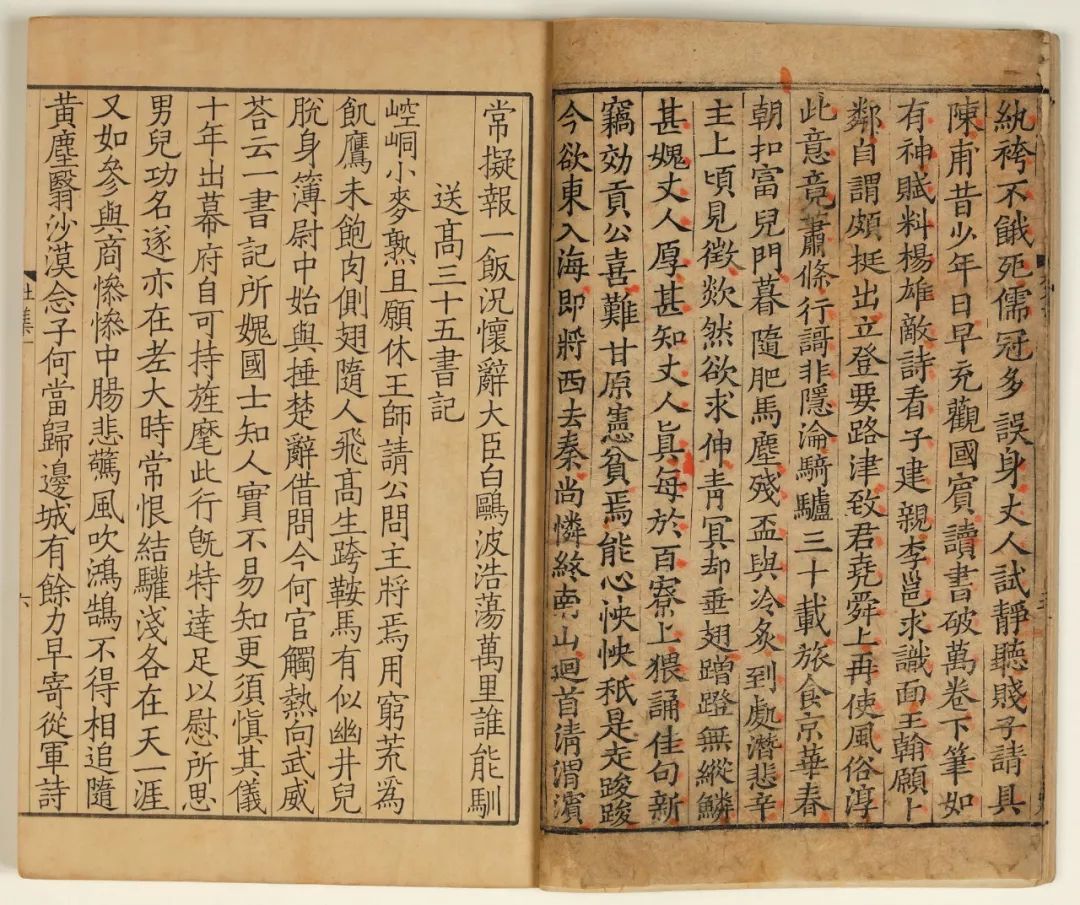 紈袴不餓死儒冠多誤身丈人試靜聽賤子請具
陳甫昔少年日早充觀國賓讀書破萬卷下筆如
有神賦料楊雄敵詩看子建親李邕求識面王翰願卜
鄰自謂頗挺出立登要路津致君堯舜上再使風俗淳
此意竟蕭條行謌非隱淪騎驢三十載旅食京華春
朝扣富兒門暮隨肥馬塵殘盃與冷炙到處潛悲辛
主上頃見徵欻然欲求伸青冥却垂翅蹭蹬無縱鱗
甚媿丈人厚甚知丈人真每於百寮上猥誦佳句新
竊効貢公喜難甘原憲貧焉能心怏怏秖是走踆踆
今欲東入海即將西去秦尚憐終南山迴首清渭濱
常擬報一飯況懷辭大臣白鷗波浩蕩萬里誰能馴
送高三十五書記
崆峒小麥熟且願休王師請公問主將焉用窮荒爲
飢鷹未飽肉側翅隨人飛高生跨鞍馬有似幽并兒
脫身簿尉中始與捶楚辭借問今何官觸熱向武威
荅云一書記所媿國士知人實不易知更須慎其儀
十年出幕府自可持旌麾此行旣特達足以慰所思
男兒功名遂亦在老大時常恨結驩淺各在天一涯
又如參與商慘慘中腸悲驚風吹鴻鵠不得相追隨
黃塵翳沙漠念子何當歸邊城有餘力早寄從軍詩
杜集一
六